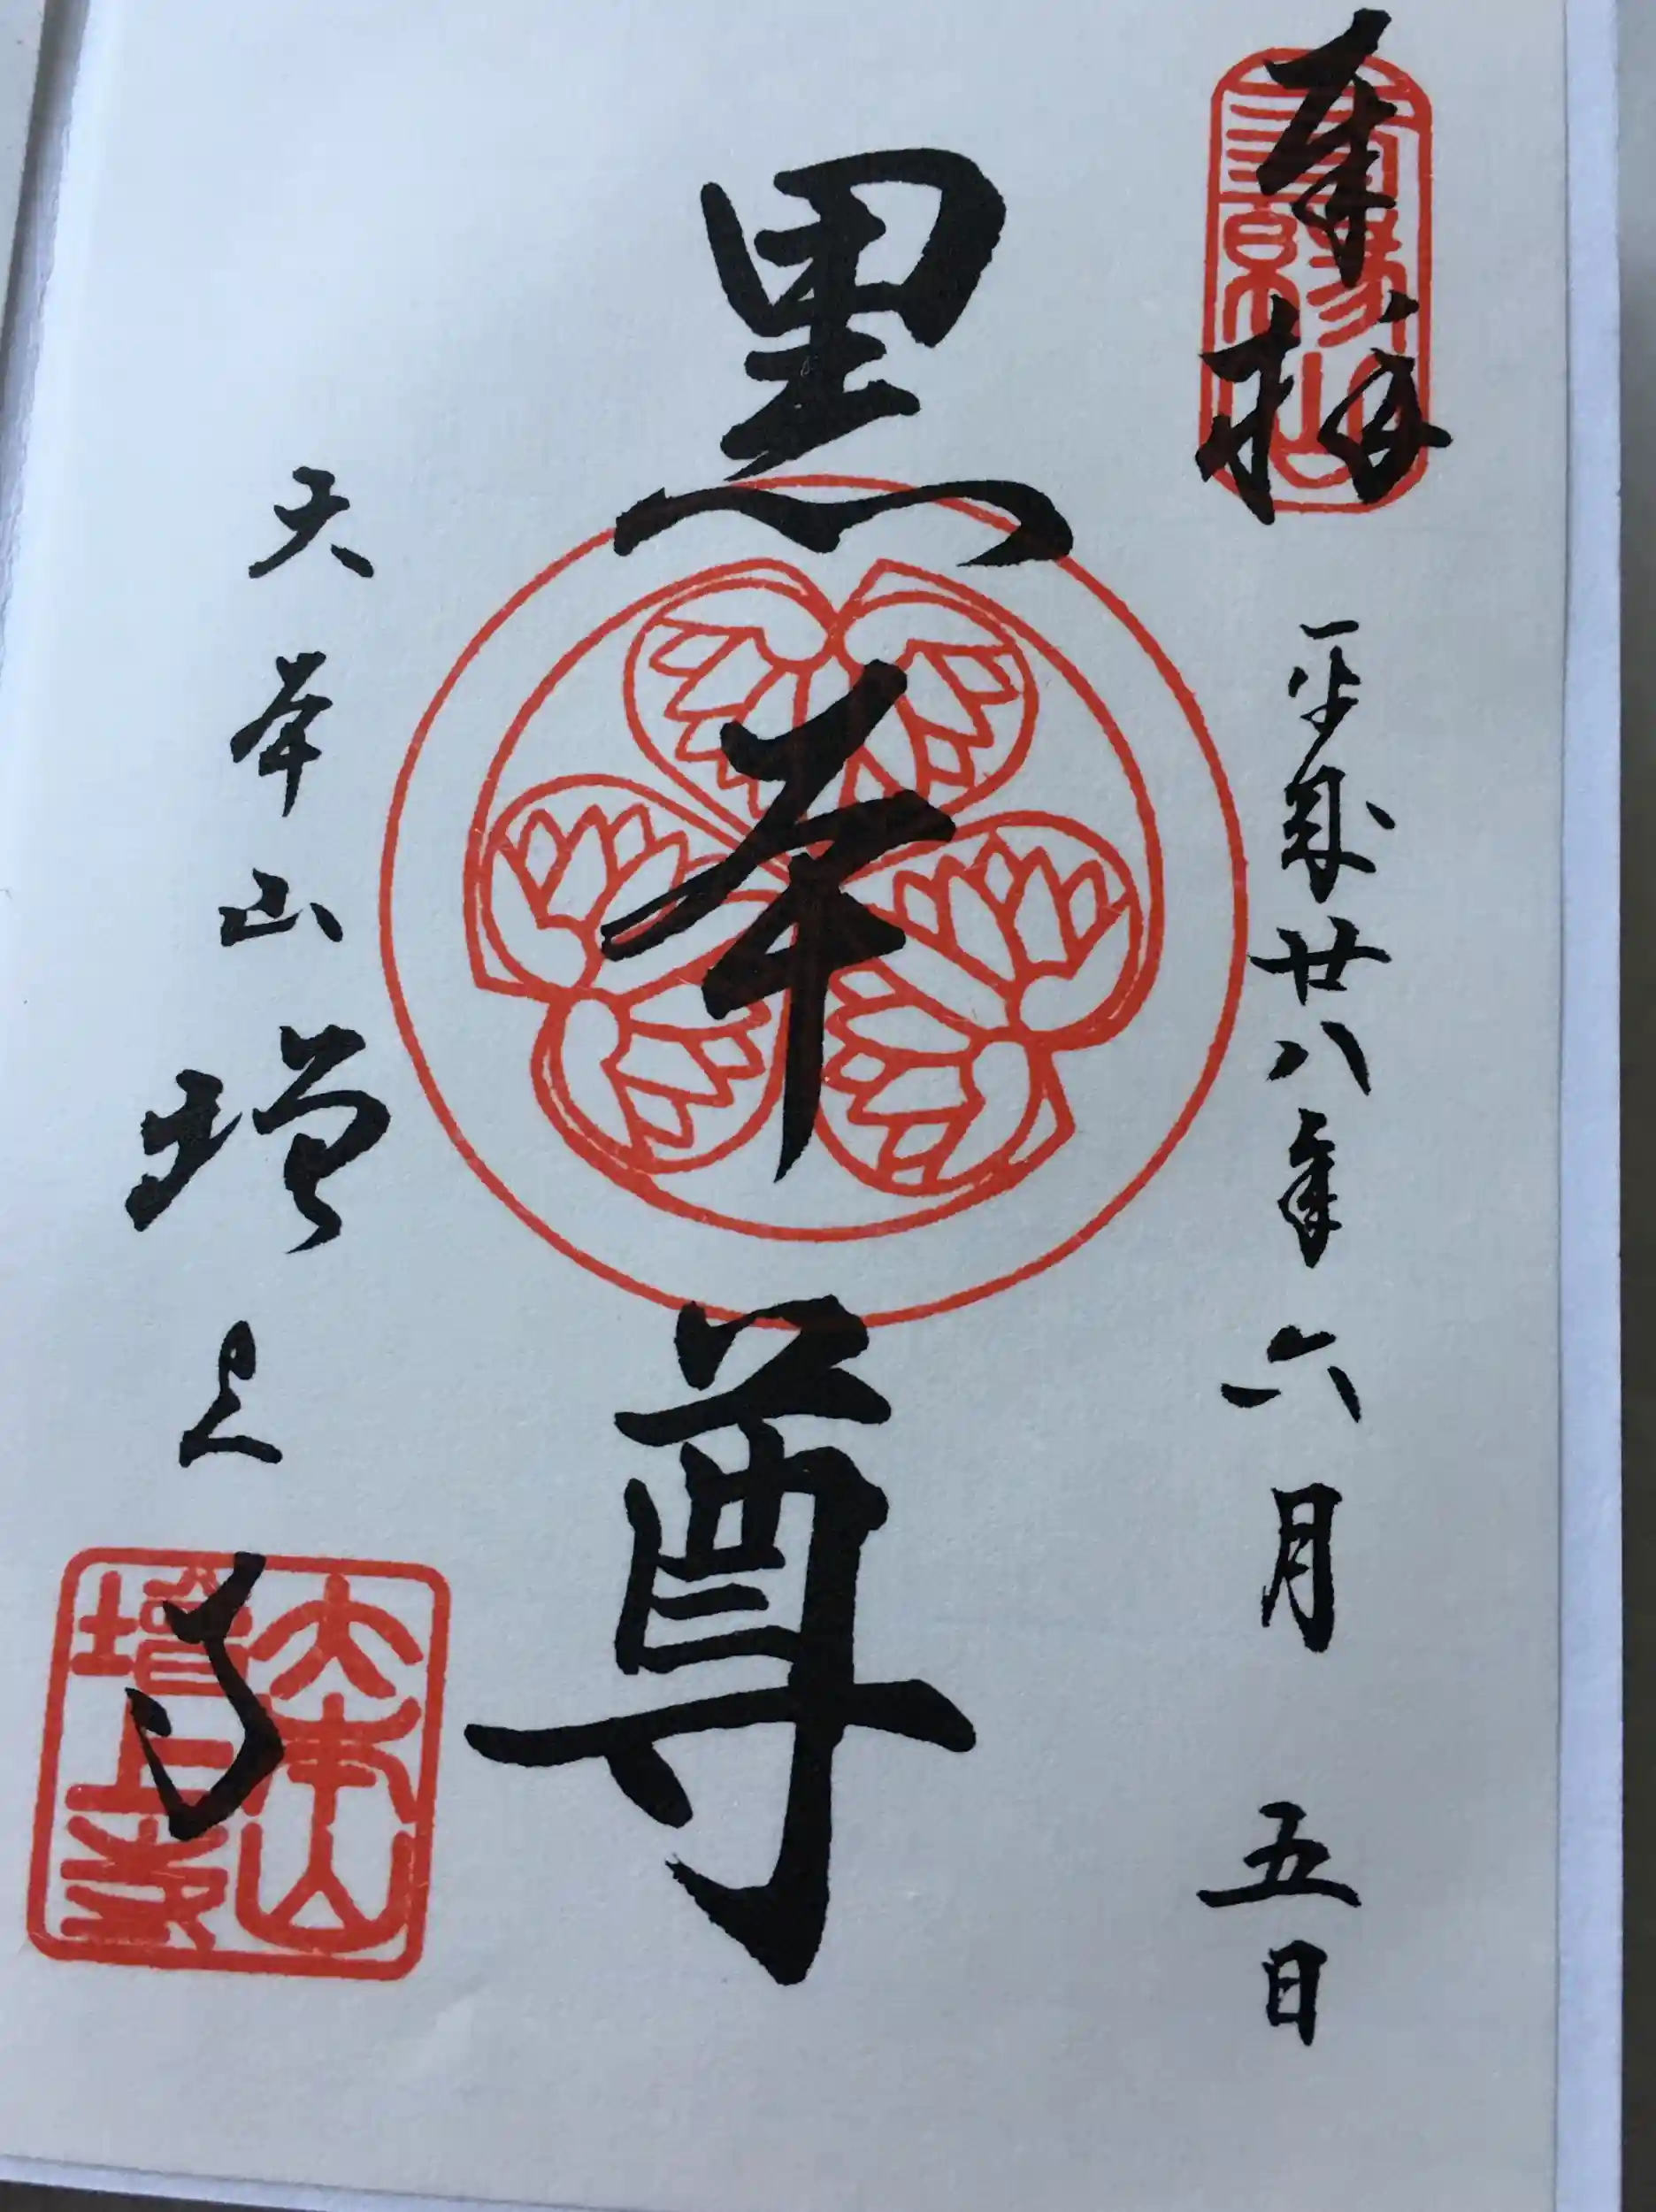 奉拝
平成廿八年六月五日
黒本尊
大本山増上寺
三縁山
大本山
増上寺